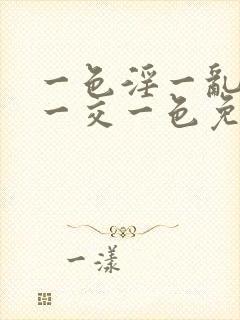 一色淫一亂
一交一色免
一漾